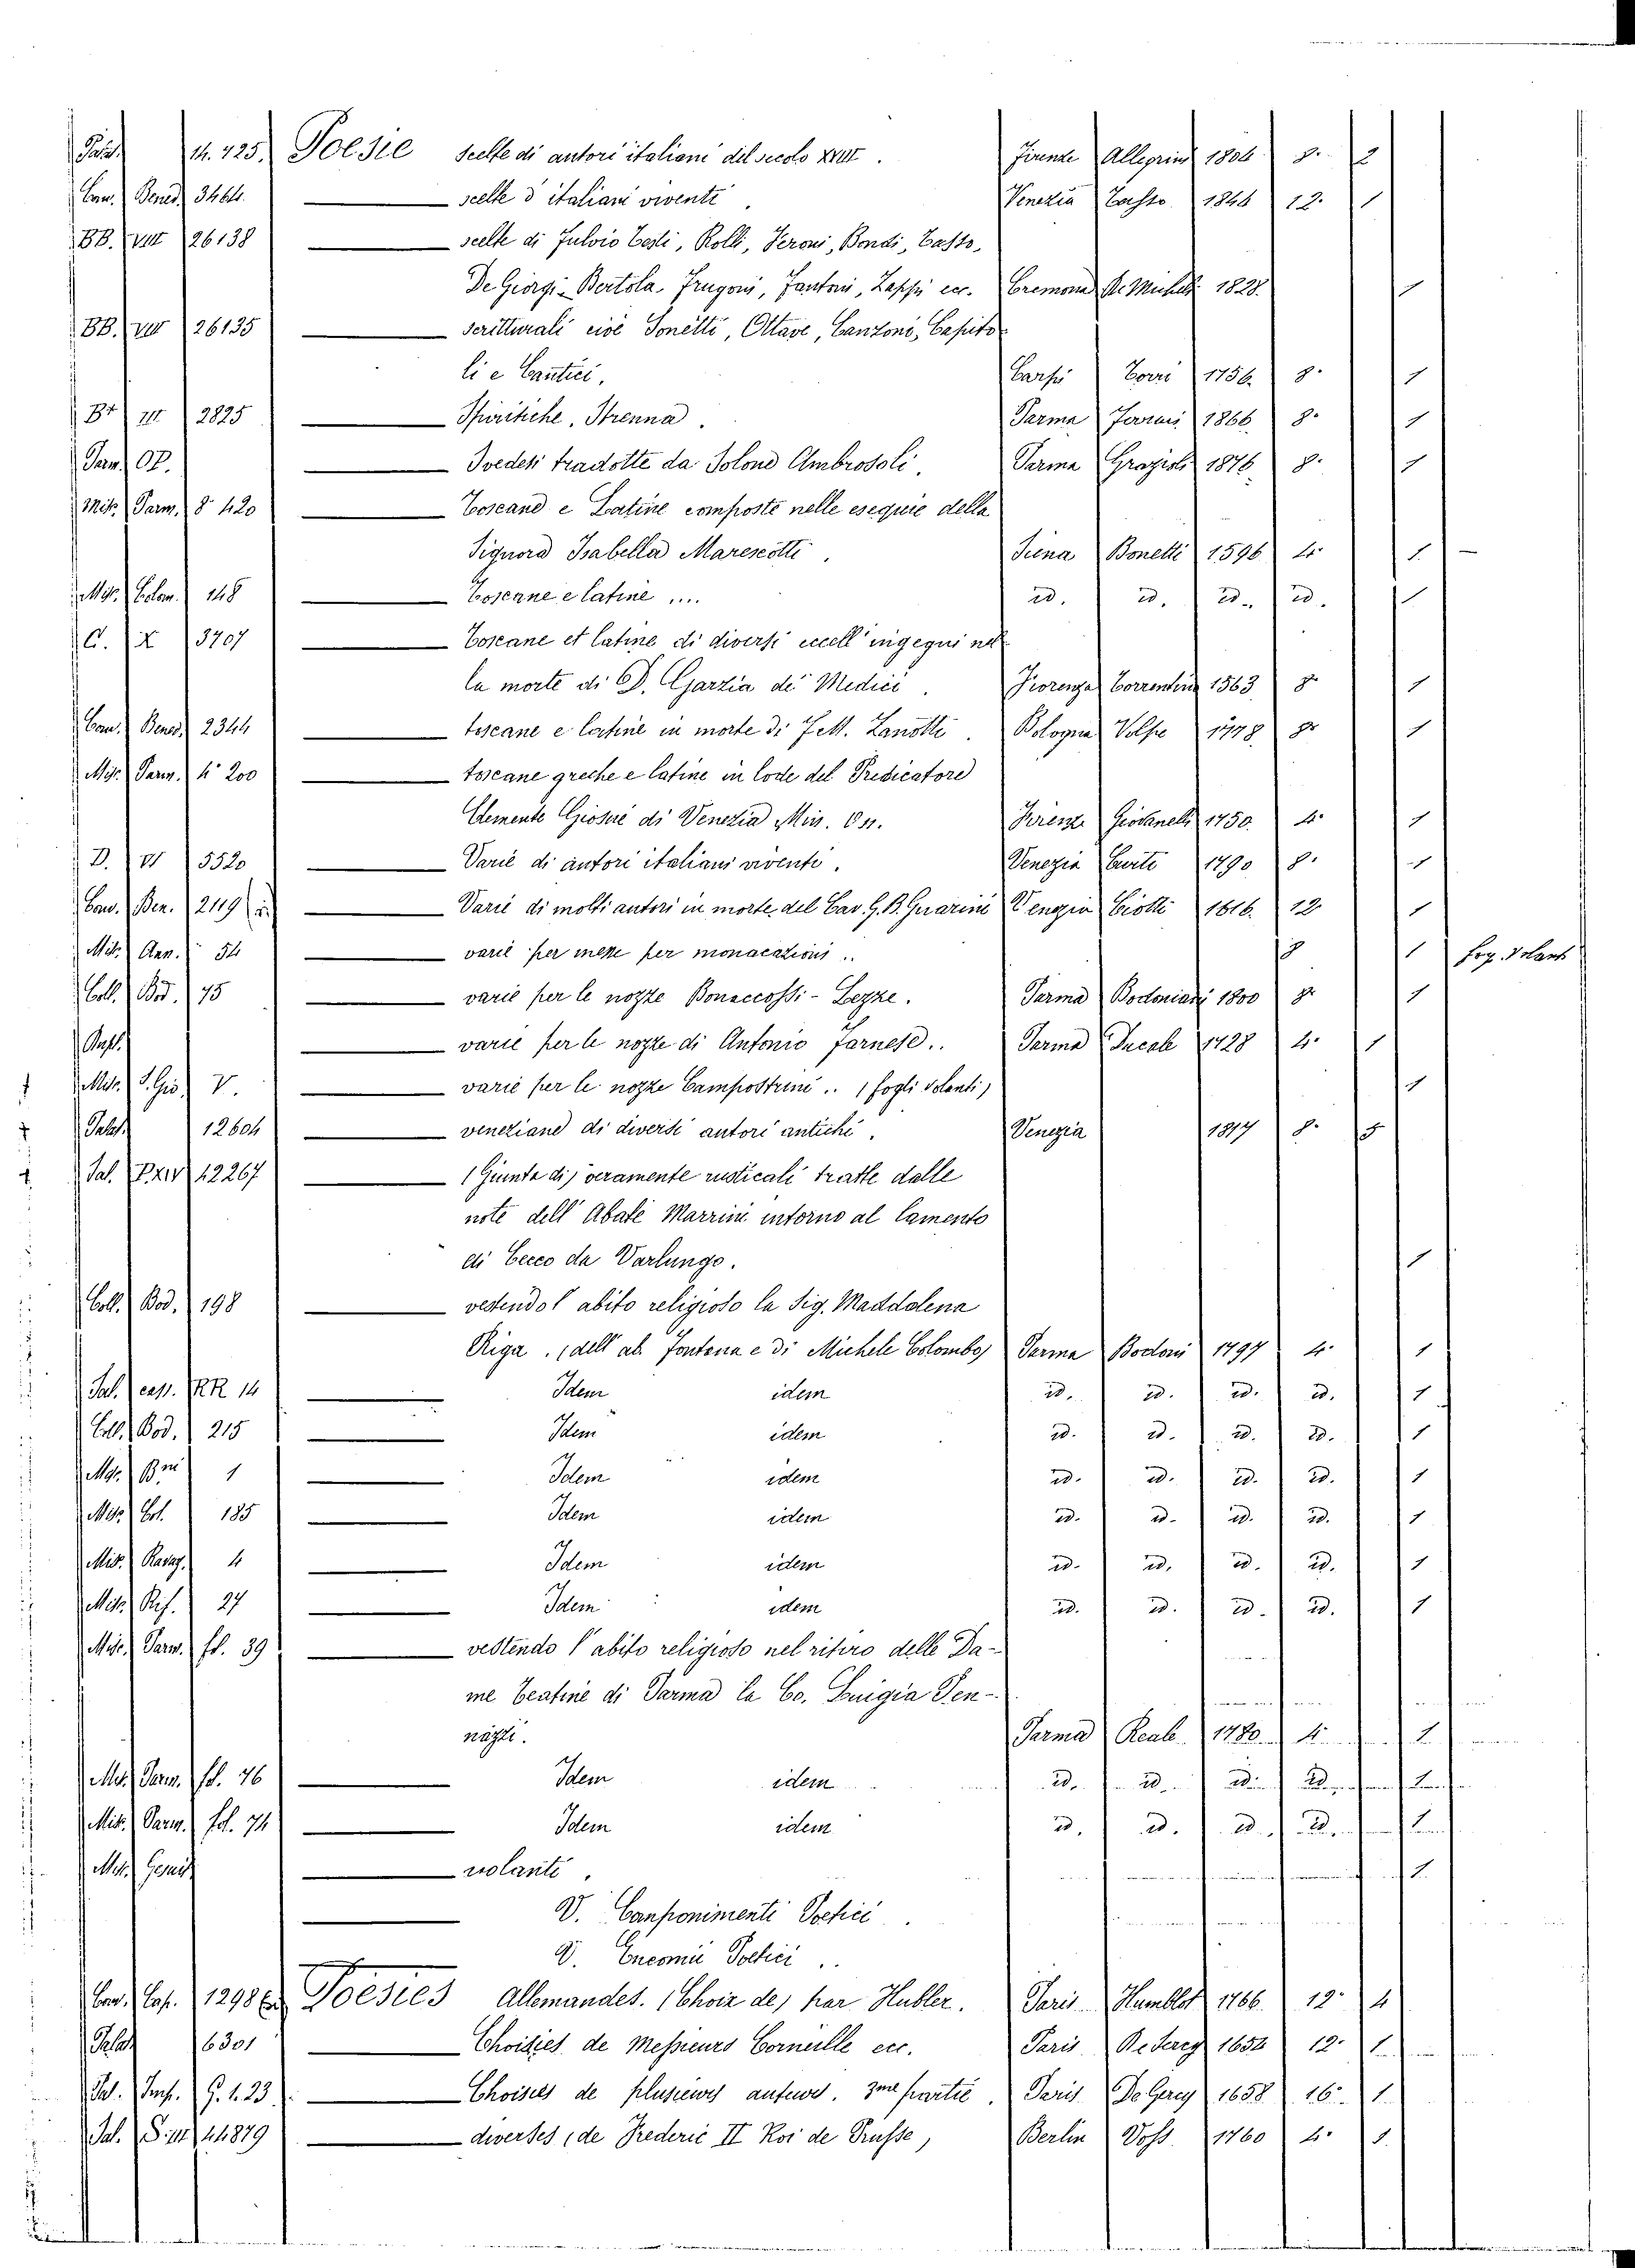 Palat. 14.425. Poesie scelte di autori italiani del secolo XVIII. Firenze Allegrini 1804 8. 2
Con. Bened. 3464. scelte d'italiani viventi Venezia Tasso 1846 12. 1
BB. VIII 26138 scelte di Fulvio Testi, Rolli, Jeroni, Bondi, Tasso,
De Giorgi-Bertola, Frugoni, Fantoni, Zappi ecc. Cremona De Micheli 1828. 1
BB. VIII 26135 scritturali cioè Sonetti, Ottave, Canzoni, Capito
li e Cantici. Carpi Torri 1756. 8. 1
Br III 2825 Spiritiche, Strenna. Parma Ferrari 1866 8. 1
Parm. OP. Svedesi tradotte da Solone Ambrosoli. Parma Grazioli 1876 8. 1
Misc. Parm. 8° 420 Toscane e Latine composte nelle esequie della
Signora Isabella Marescotti. Siena Bonetti 1596 4. 1
Misc. Colom. 148 Toscane e latine .... id. id. id. id. 1
C. X 3707 Toscane et latine di diversi eccell' ingegni nel
la morte di D. Garzia de' Medici. Fiorenza Torrentino 1563 8. 1
Con. Bened. 2344 toscane e latine in morte di F. M. Zanotti. Bologna Volpe 1778 8. 1
Misc. Parm. 4° 200 toscane greche e latine in lode del Predicatore
Clemente Giosuè di Venezia Min. Oss. Firenze Giovanelli 1750. 4. 1
D. VI 5520 Varie di autori italiani viventi. Venezia Curti 1790 8. 1
Conv. Ben. 2119 Varie di molti autori in morte del Cav. G. B. Guarini Venezia Ciotti 1616. 12 1
Misc. Ann. 54 varie per messe per monacazioni.. 8 1 fog. volanti
Coll. Bod. 75 varie per le nozze Bonaccossi-Lezze. Parma Bodoniani 1800 8. 1
varie per le nozze di Antonio Farnese.. Parma Ducale 1728 4. 1
Misc. S. Gio. V. varie per le nozze Campostrini.. (fogli volanti) 1
Palat. 12604 veneziane di diversi autori antichi. Venezia 1817 8. 5
Pal. P.XIV 12267 (Giunta di) veramente rusticali tratte dalle
note dell'Abate Marrini intorno al lamento
di Cecco da Varlungo. 1
Coll. Bod. 198 vestendo l'abito religioso la Sig. Maddalena
Riga. (dell'ab. Fontana e di Michele Colombo) Parma Bodoni 1797 4. 1
Pal. cass. RR 14 Idem idem id. id. id. id. 1
Coll. Bod. 215 Idem idem id. id. id. id. 1
Misc. Bni 1 Idem idem id. id. id. id. 1
Misc. Col. 185 Idem idem id. id. id. id. 1
Misc. Ravag. 4 Idem idem id. id. id. id. 1
Misc. Ref. 27 Idem idem id. id. id. id. 1
Misc. Parm. fol. 39 vestendo l'abito religioso nel ritiro delle Da-
me Teatine di Parma la Co. Luigia Pen-
nazzi. Parma Reale 1780 4. 1
Misc. Parm. fol. 76 Idem idem id. id. id. id. 1
Misc. Parm. fol. 74 Idem idem id. id. id. id. 1
Misc. volanti. 1
V. Componimenti Poetici.
V. Encomii Poetici..
Con. Cap. 1298 Poésies allemandes. (Choix de) par Hubler. Paris Humblot 1766. 12. 4
Palat. 6301 Choisies de Messieurs Corneille ecc. Paris De Sercy 1654 12. 1
Pal. Imp. G. 1. 23 Choisies de plusieurs auteurs. 3me partie. Paris De Sercy 1658 16. 1
Pal. S. III 44879 diverses (de Frederic II Roi de Prusse) Berlin Voss 1760 4. 1.